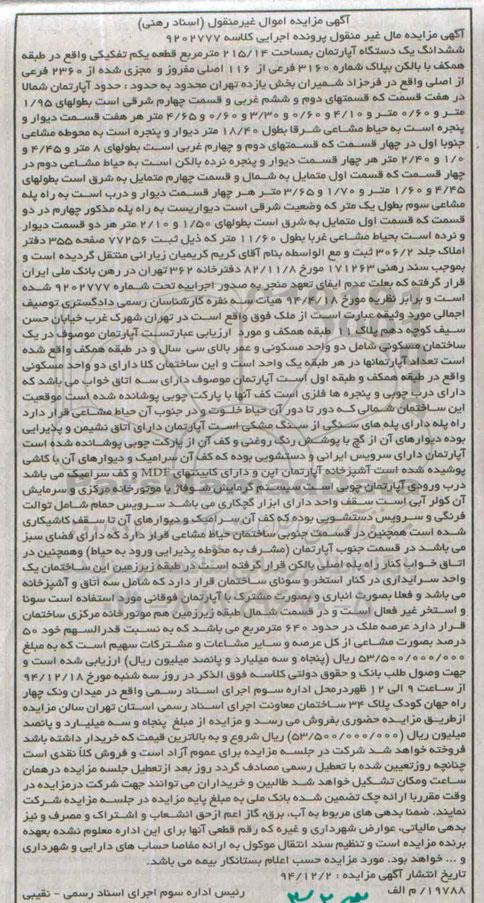 آگهی مزایده اموال غیرمنقول (اسناد رهنی)
آگهی مزایده مال غیر منقول پرونده اجرایی کلاسه ۹۲۰۲۷۷۷
ششدانگ یک دستگاه آپارتمان بمساحت ۲۱۵/۱۴ مترمربع قطعه یکم تفکیکی واقع در طبقه
همکف با بالکن بپلاک شماره ۳۱۶۰ فرعی از ۱۱۶ اصلی مفروز و مجزی شده از ۲۳۶۰ فرعی
از اصلی واقع در فرحزاد شمیران بخش یازده تهران محدود به حدود : حدود آپارتمان شمالا
در هفت قسمت که قسمتهای دوم و ششم غربی و قسمت چهارم شرقی است بطولهای ۱/۹۵
متر و ۰/۶۰ متر و ۴/۱۰ و ۰/۶۰ و ۳/۳۰ و ۰/۶۰ و ۴/۶۵ متر هر هفت قسمت دیوار و
پنجره است به حیاط مشاعی شرقا بطول ۱۸/۴۰ متر دیوار و پنجره است به محوطه مشاعی
جنوبا اول در چهار قسمت که قسمتهای دوم و چهارم غربی است بطولهای ۸ متر و ۴/۴۵ و
۱/۰ و ۲/۴۰ متر هر چهار قسمت دیوار و پنجره نرده بالکن است به حیاط مشاعی دوم در
چهار قسمت که قسمت اول متمایل به شمال و قسمت چهارم متمایل به شرق است بطولهای
۴/۴۵ و ۱/۶۰ متر و ۱/۷۰ و ۳/۶۵ متر هر چهار قسمت دیوار و درب است به راه پله
مشاعی سوم بطول یک متر که وضعیت شرقی است دیواریست به راه پله مذکور چهارم در دو
قسمت که قسمت اول متمایل به شرق است بطولهای ۱/۵۰ و ۲/۱۰ متر هر دو قسمت دیوار
و نرده است بحیاط مشاعی غربا بطول ۱۱/۶۰ متر که ذیل ثبت ۷۷۲۵۶ صفحه ۳۵۵ دفتر
املاک جلد ۳۰۶/۲ ثبت و مع الواسطه بنام آقای کریم کریمیان زیارانی منتقل گردیده است و
بموجب سند رهنی ۱۷۱۲۶۳ مورخ ۸۲/۱۱/۸ دفترخانه ۳۶۲ تهران در رهن بانک ملی ایران
قرار گرفته که بعلت عدم ایفای تعهد منجر به صدور اجراییه تحت شماره ۹۲۰۲۷۷۷ شده
است و برابر نظریه مورخ ۹۴/۴/۱۸ هیات سه نفره کارشناسان رسمی دادگستری توصیف
اجمالی مورد وثیقه عبارت است از ملک فوق واقع است در تهران شهرک غرب خیابان حسن
سیف کوچه دهم پلاک ۱۱ طبقه همکف و مورد ارزیابی عبارتست آپارتمان موصوف در یک
ساختمان مسکونی شامل دو واحد مسکونی و عمر بالای سی سال و در طبقه همکف واقع شده
است تعداد آپارتمانها در هر طبقه یک واحد است و این ساختمان کلا دارای دو واحد مسکونی
واقع در طبقه همکف و طبقه اول است آپارتمان موصوف دارای سه اتاق خواب می باشد که
دارای درب چوبی و پنجره ها فلزی است کف آنها با پارکت چوبی پوشانده شده است موقعیت
این ساختمان شمالی که دور تا دور آن حیاط خلوت و در جنوب آن حیاط مشاعی قرار دارد
راه پله دارای پله های سنگی از سنگ مشکی است آپارتمان دارای اتاق نشیمن و پذیرایی
بوده دیوارهای آن از گچ با پوشش رنگ روغنی و کف آن از پارکت چوبی پوشانده شده است
آپارتمان دارای سرویس ایرانی و دستشویی بوده که کف آن سرامیک و دیوارهای آن با کاشی
پوشیده شده است آشپزخانه آپارتمان اپن و دارای کابینتهای MDF و کف سرامیک می باشد
درب ورودی آپارتمان چوبی است سیستم گرمایش شوفاژ با موتورخانه مرکزی و سرمایش
آن کولر آبی است سقف واحد دارای ابزار گچکاری می باشد سرویس حمام شامل توالت
فرنگی و سرویس دستشویی بوده که کف آن سرامیک و دیوارهای آن تا سقف کاشیکاری
شده است همچنین در قسمت جنوبی ساختمان حیاط مشاعی قرار دارد که دارای فضای سبز
می باشد در قسمت جنوب آپارتمان (مشرف به محوطه پذیرایی ورود به حیاط) وهمچنین در
اتاق خواب کنار راه پله اصلی بالکن قرار گرفته است در طبقه زیرزمین این ساختمان یک
واحد سرایداری در کنار استخر و سونای ساختمان قرار دارد که شامل سه اتاق و آشپزخانه
می باشد و فعلا بصورت انباری و بصورت مشترک با آپارتمان فوقانی مورد استفاده است سونا
و استخر غیر فعال است و در قسمت شمال طبقه زیرزمین هم موتورخانه مرکزی ساختمان
قرار دارد عرصه ملک در حدود ۶۴۰ مترمربع می باشد که به نسبت قدرالسهم خود ۵۰
درصد بصورت مشاعی از کل عرصه و سایر مشاعات و مشترکات سهیم است که به مبلغ
۵۳/۵۰۰/۰۰۰/۰۰۰ ریال (پنجاه و سه میلیارد و پانصد میلیون ریال) ارزیابی شده است و
جهت وصول طلب بانک و حقوق دولتی کلاسه فوق الذکر در روز سه شنبه مورخ ۹۴/۱۲/۱۸
از ساعت ۹ الی ۱۲ ظهردرمحل اداره سوم اجرای اسناد رسمی واقع در میدان ونک چهار
راه جهان کودک پلاک ۳۴ ساختمان معاونت اجرای اسناد رسمی استان تهران سالن مزایده
ازطریق مزایده حضوری بفروش می رسد و مزایده از مبلغ پنجاه و سه میلیارد و پانصد
میلیون ریال (۵۳/۵۰۰/۰۰۰/۰۰۰) ریال شروع و به بالاترین قیمت که خریدار داشته باشد
فروخته خواهد شد شرکت در جلسه مزایده برای عموم آزاد است و فروش کلاً نقدی است
چنانچه روزتعیین شده با تعطیل رسمی مصادف گردد روز بعد ازتعطیل جلسه مزایده درهمان
ساعت ومکان تشکیل خواهد شد طالبین و خریداران می توانند جهت شرکت درمزایده در
وقت مقرربا ارائه چک تضمین شده بانک ملی به مبلغ پایه مزایده در جلسه مزایده شرکت
نمایند. ضمنا بدهی های مربوط به آب، برق، گاز اعم ازحق انشعاب و اشتراک و مصرف و نیز
بدهی مالیاتی، عوارض شهرداری و غیره که رقم قطعی آنها برای این اداره معلوم نشده بعهده
برنده مزایده است و تنظیم سند انتقال موکول به ارائه مفاصا حساب های دارایی و شهرداری
و ... خواهد بود. مورد مزایده حسب اعلام بستانکار بیمه می باشد.
تاریخ انتشار آگهی مزایده : ۹۴/۱۲/۲
۱۹۷۸۸/ م الف رئیس اداره سوم اجرای اسناد رسمی - نقیبی